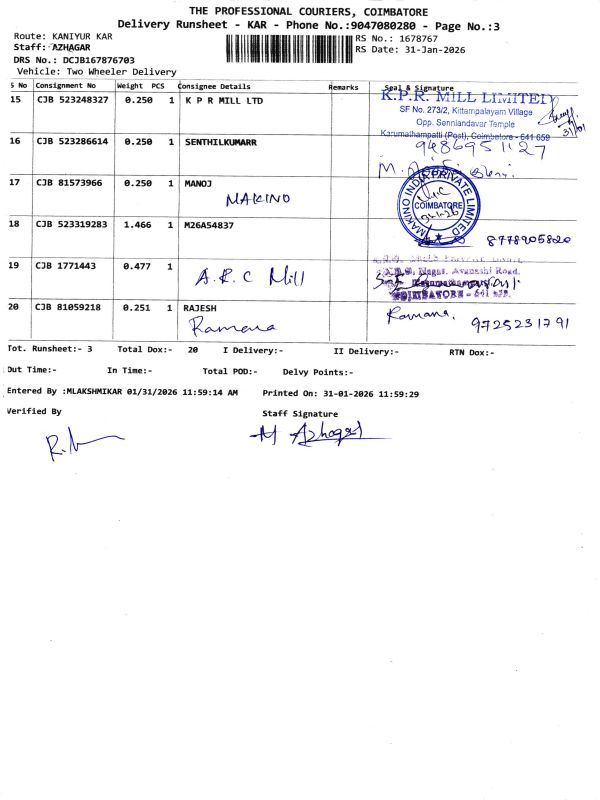 THE PROFESSIONAL COURIERS, COIMBATORE
Delivery Runsheet - KAR - Phone No.:9047080280 - Page No.:3
Route: KANIYUR KAR
RS No.: 1678767
Staff: AZHAGAR
RS Date: 31-Jan-2026
DRS No.: DCJB167876703
Vehicle: Two Wheeler Delivery
S No Consignment No Weight PCS Consignee Details Remarks Seal & Signature
15 CJB 523248327 0.250 1 K P R MILL LTD
K.P.R. MILL LIMITED
SF No. 273/2, Kittampalayam Village
Opp. Senniandavar Temple
Karumathampatti (Post), Coimbatore - 641 659
31/01
16 CJB 523286614 0.250 1 SENTHILKUMARR
9486951127
17 CJB 81573966 0.250 1 MANOJ
MAKINO
MAKINO INDIA PRIVATE LIMITED
COIMBATORE
18 CJB 523319283 1.466 1 M26A54837
8778905820
19 CJB 1771443 0.477 1
A.R.C Mill
Nagar, Avanashi Road,
COIMBATORE - 641
20 CJB 81059218 0.251 1 RAJESH
Ramana
Ramana.
9725231791
Tot. Runsheet:- 3 Total Dox:- 20 I Delivery:- II Delivery:- RTN Dox:-
Out Time:- In Time:- Total POD:- Delvy Points:-
Entered By :MLAKSHMIKAR 01/31/2026 11:59:14 AM Printed On: 31-01-2026 11:59:29
Verified By Staff Signature
M Azhagar